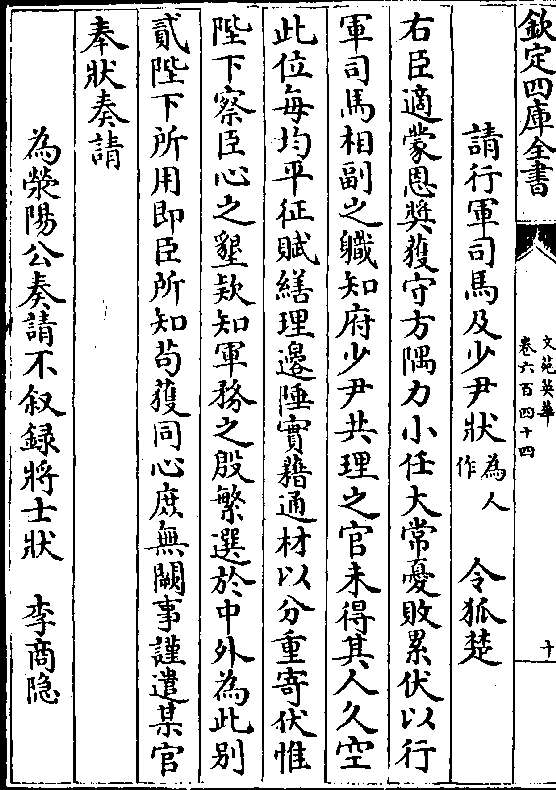 欽定四庫全書
文苑英華
卷六百四十四
十
請行軍司馬及少尹狀 為人作 令狐楚
右臣適蒙恩奬獲守方隅力小任大常憂敗累伏以行
軍司馬相副之軄知府少尹共理之官未得其人久空
此位每均平征賦繕理邊陲實藉通材以分重寄伏惟
陛下察臣心之墾欵知軍務之殷繁選於中外為此别
貳陛下所用即臣所知苟獲同心庶無闕事謹遣某官
奉狀奏請
為滎陽公奏請不叙録將士狀 李商隐